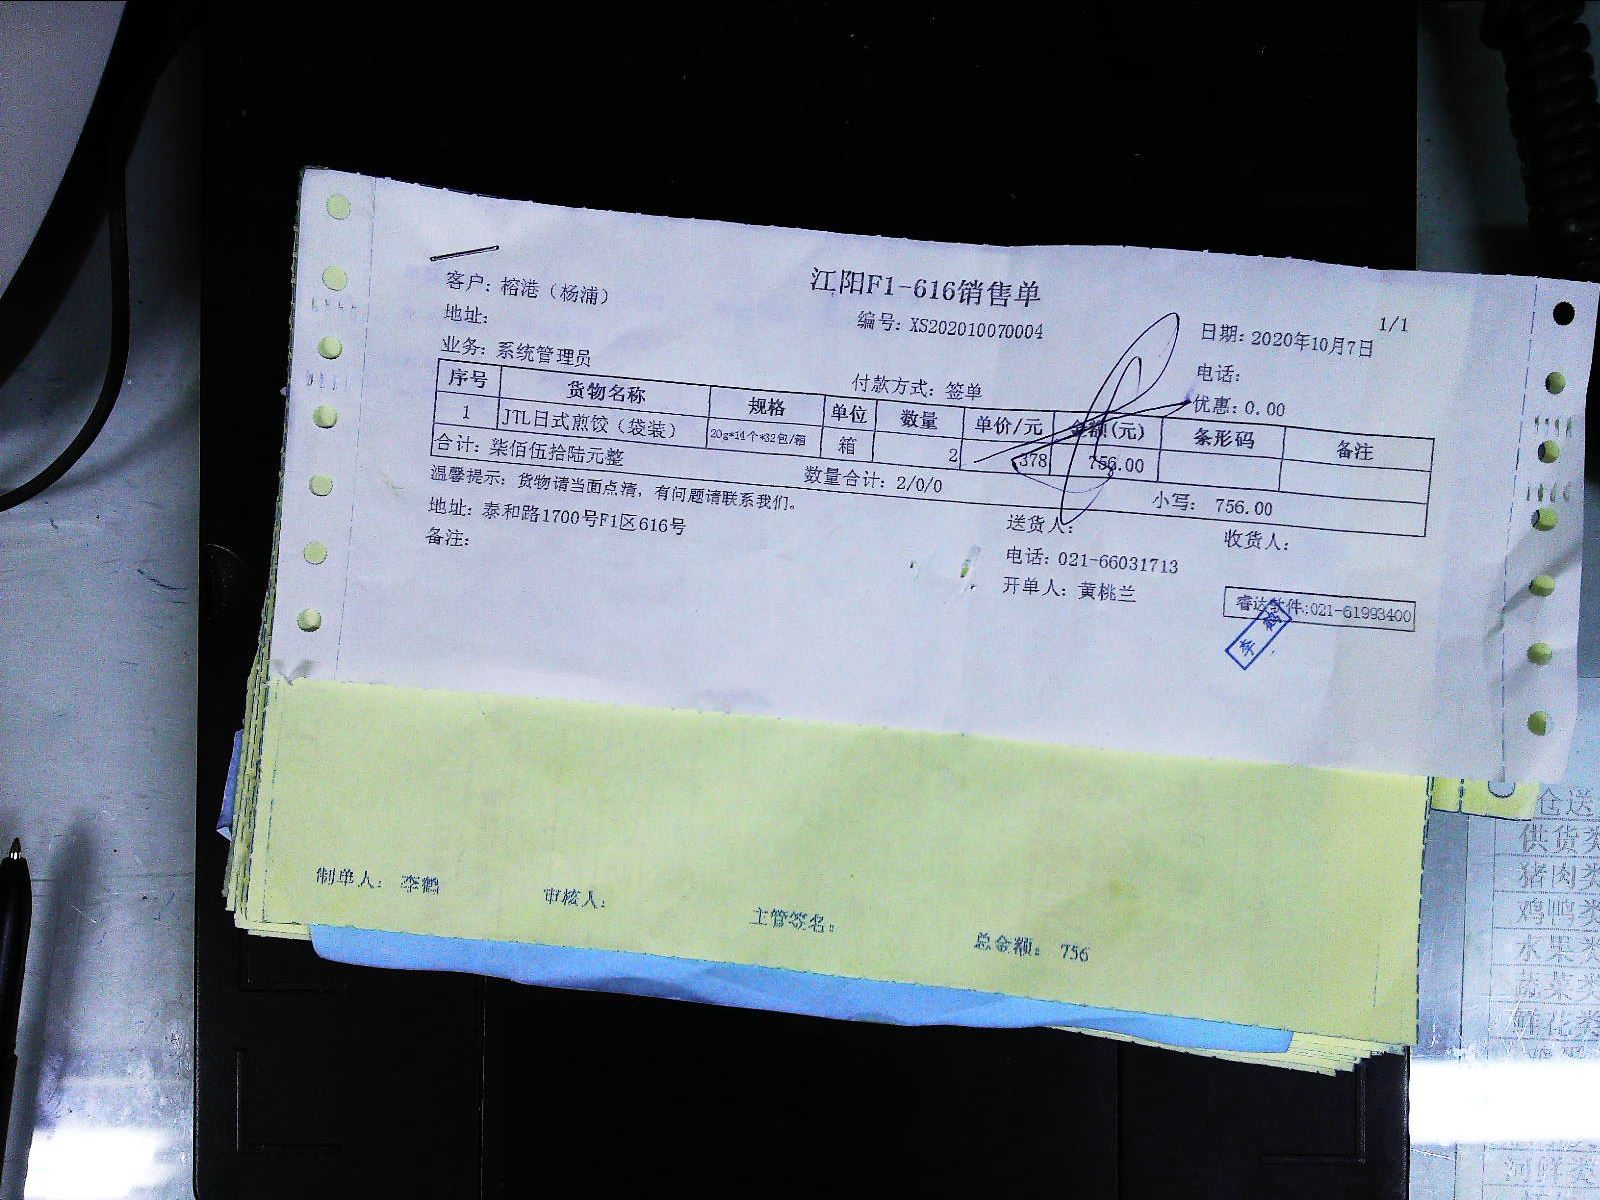 江阳F1-616销售单
1/1
客户: 榕港（杨浦） 编号: XS202010070004 日期: 2020年10月7日
地址: 电话:
业务: 系统管理员 付款方式: 签单 优惠: 0.00
序号 货物名称 规格 单位 数量 单价/元 金额(元) 条形码 备注
1 JTL日式煎饺（袋装） 20g*14个*32包/箱 箱 2 378 756.00
合计: 柒佰伍拾陆元整 数量合计: 2/0/0 小写: 756.00
温馨提示: 货物请当面点清，有问题请联系我们。 送货人: 收货人:
地址: 泰和路1700号F1区616号 电话: 021-66031713
备注: 开单人: 黄桃兰
睿达软件:021-61993400
李鹤
制单人: 李鹤 审核人: 主管签名: 总金额: 756
仓送
供货类
猪肉类
鸡鸭类
水果类
蔬菜类
鲜花类
河鲜类